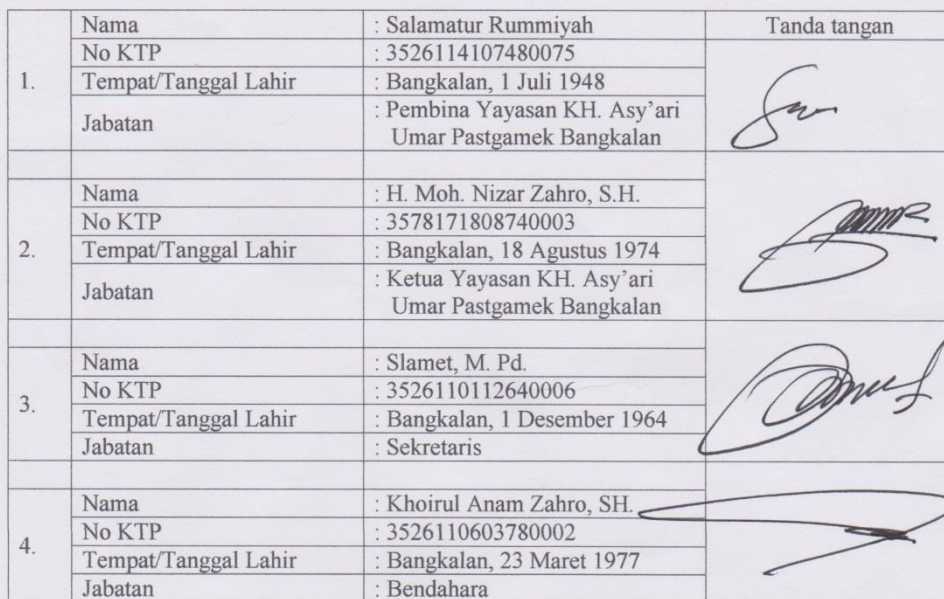 Nama : Salamatur Rummiyah Tanda tangan
No KTP : 3526114107480075
1. Tempat/Tanggal Lahir : Bangkalan, 1 Juli 1948
Jabatan : Pembina Yayasan KH. Asy'ari
Umar Pastgamek Bangkalan
Nama : H. Moh. Nizar Zahro, S.H.
No KTP : 3578171808740003
2. Tempat/Tanggal Lahir : Bangkalan, 18 Agustus 1974
Jabatan : Ketua Yayasan KH. Asy'ari
Umar Pastgamek Bangkalan
Nama : Slamet, M. Pd.
No KTP : 3526110112640006
3. Tempat/Tanggal Lahir : Bangkalan, 1 Desember 1964
Jabatan : Sekretaris
Nama : Khoirul Anam Zahro, SH.
No KTP : 3526110603780002
4. Tempat/Tanggal Lahir : Bangkalan, 23 Maret 1977
Jabatan : Bendahara